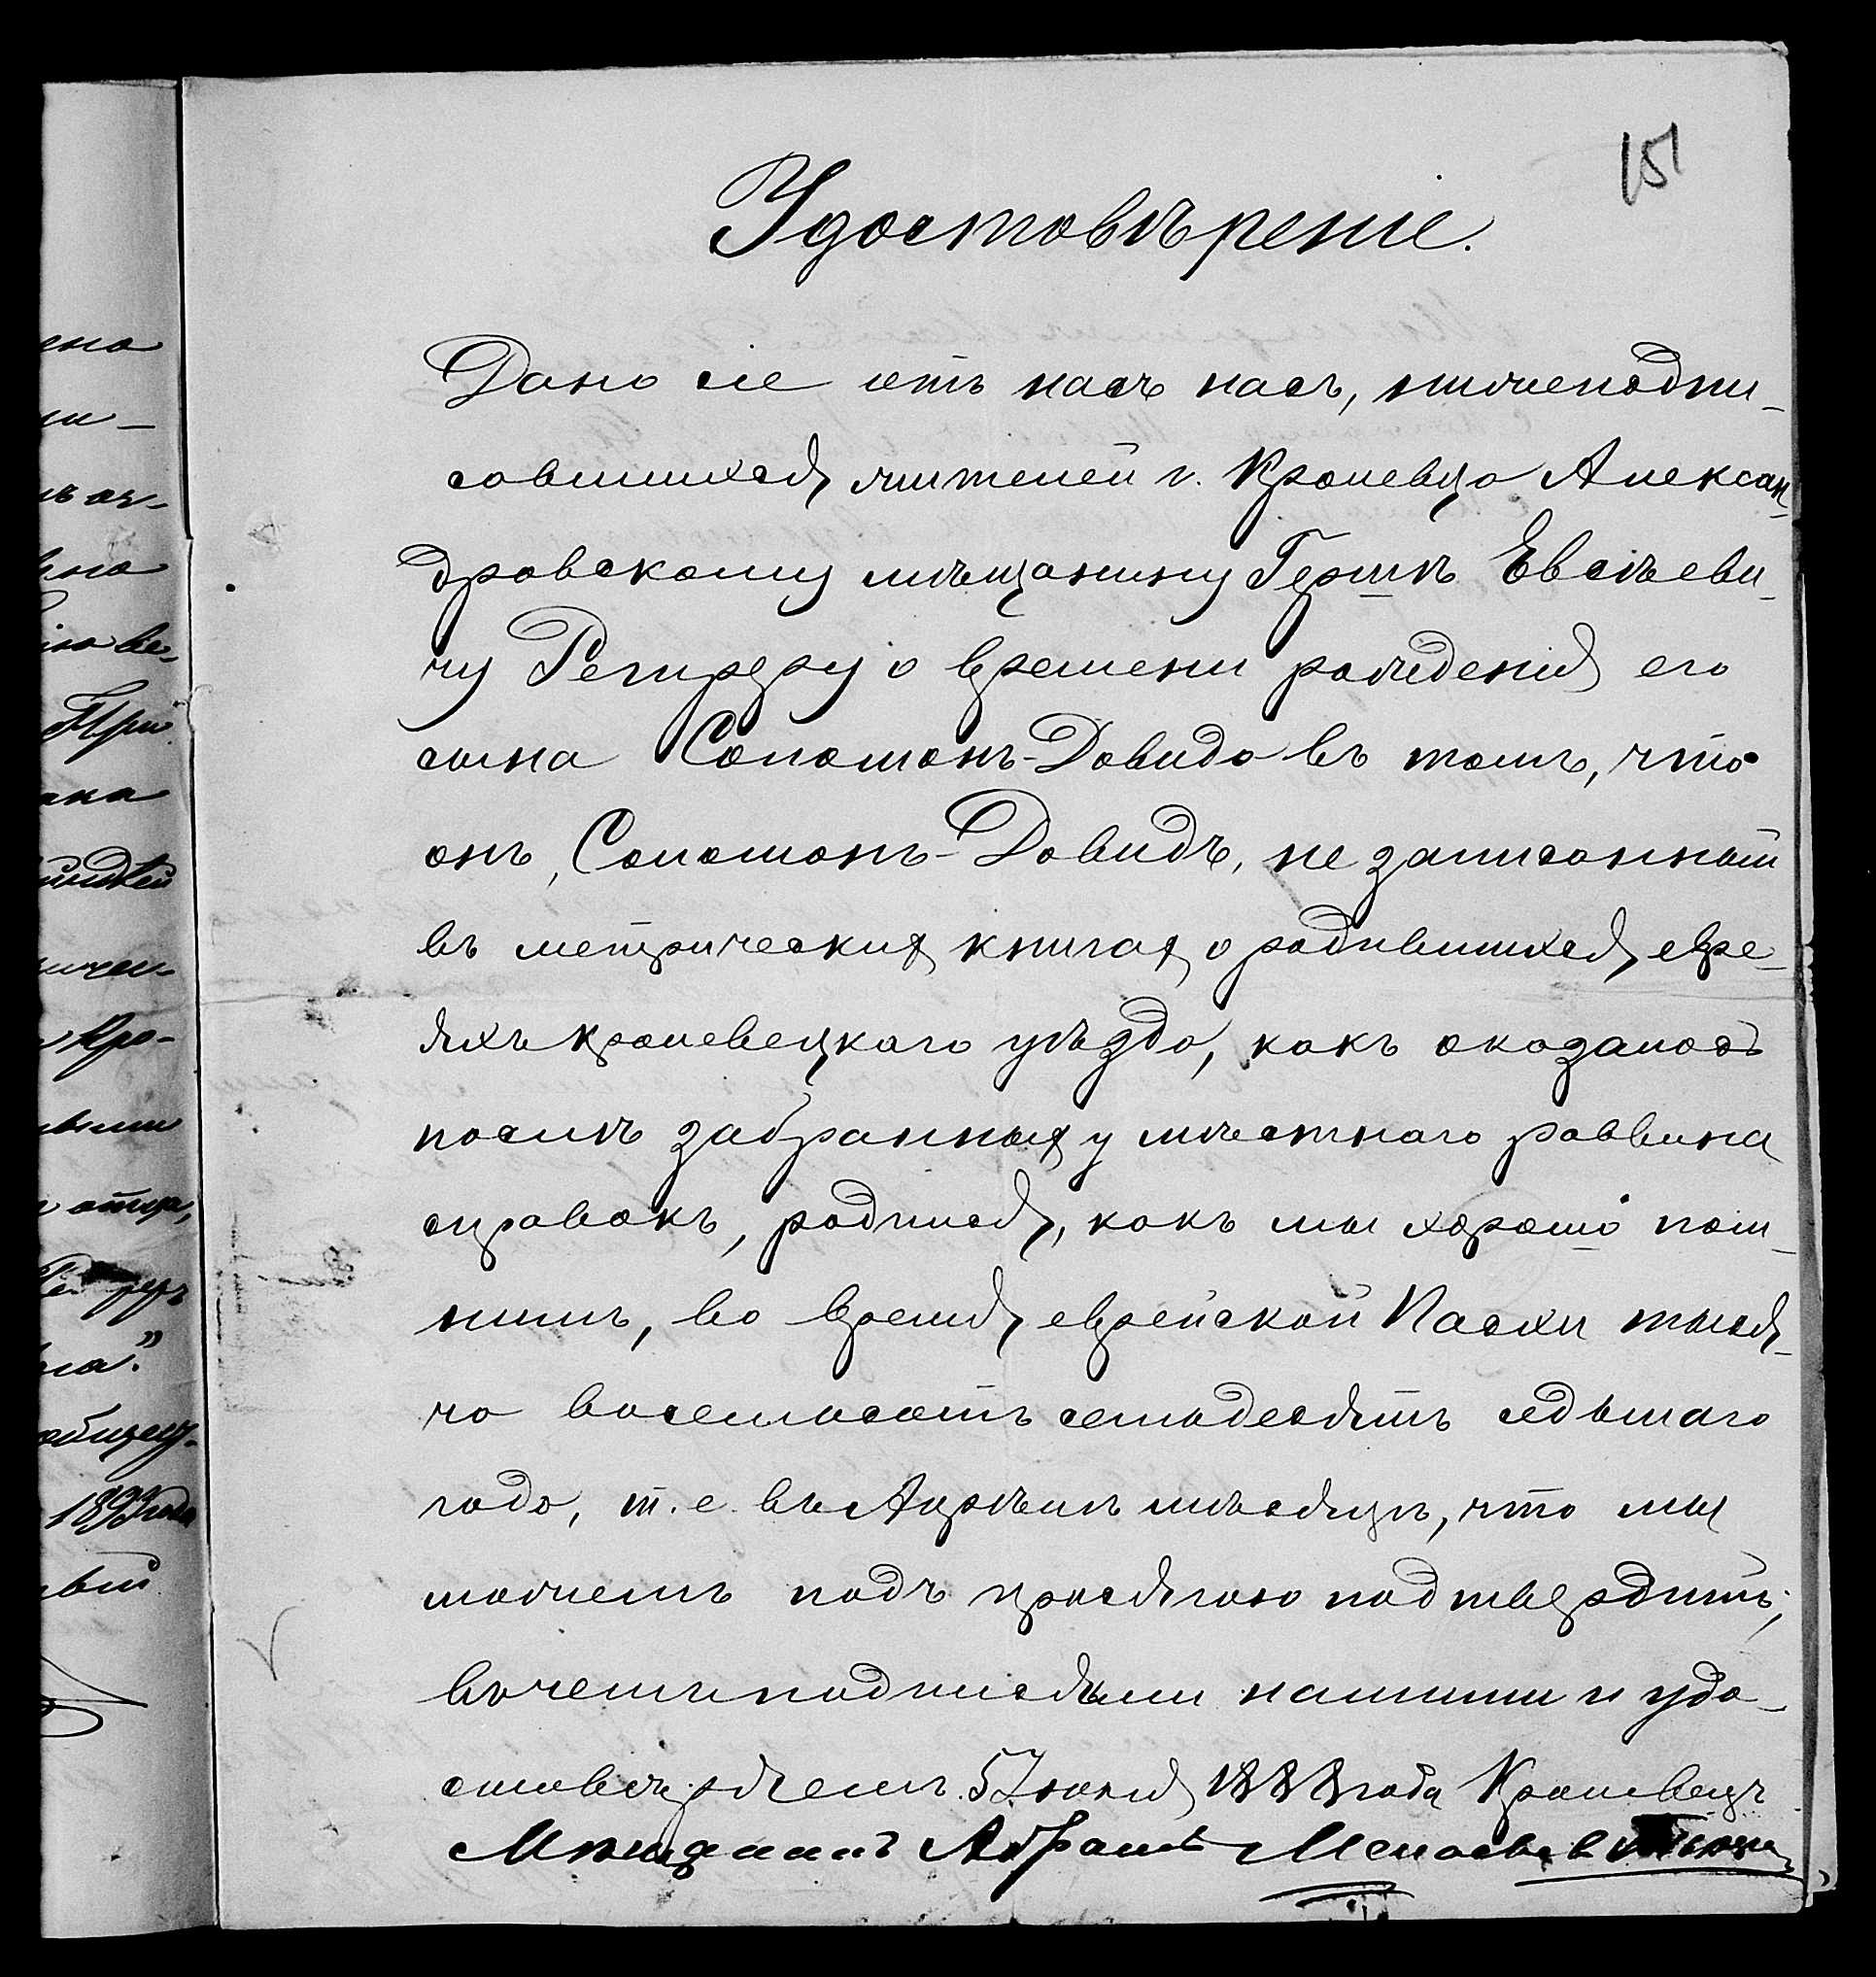 151
Удостовѣреніе.
Дано сіе отъ насъ насъ, нижеподпи-
савшихся жителей г. Кролевца Алексан-
дровскому мѣщанину Гершкѣ Евсѣеви-
чу Ретреру о времени рожденія его
сына Соломонъ-Давида въ томъ, что
онъ, Соломонъ-Давидъ, не записанный
въ метрическихъ книгахъ о родившихся евре-
яхъ Кролевецкаго уѣзда, какъ оказалось
послѣ забранныхъ у мѣстнаго раввина
справокъ, родился, какъ мы хорошо пом-
нимъ, во время еврейской Пасхи тыся-
ча восемьсотъ семьдесятъ седьмаго
года, т.е. въ Апрѣлѣ мѣсяцѣ, что мы
можемъ подъ присягою подтвердить,
въ чемъ подписями нашими и удо-
стовѣряемъ. 5 Іюня 1888 года Кролевецъ
Мѣщанинъ Абрамъ
ена
ни-
ана
При
Кро-
отца,
ла."
1893 года
вый